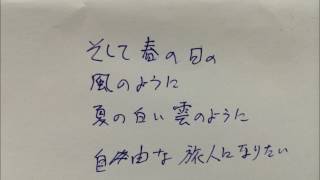 そして春の日の
風のように
夏の白い雲のように
自由な旅人になりたい